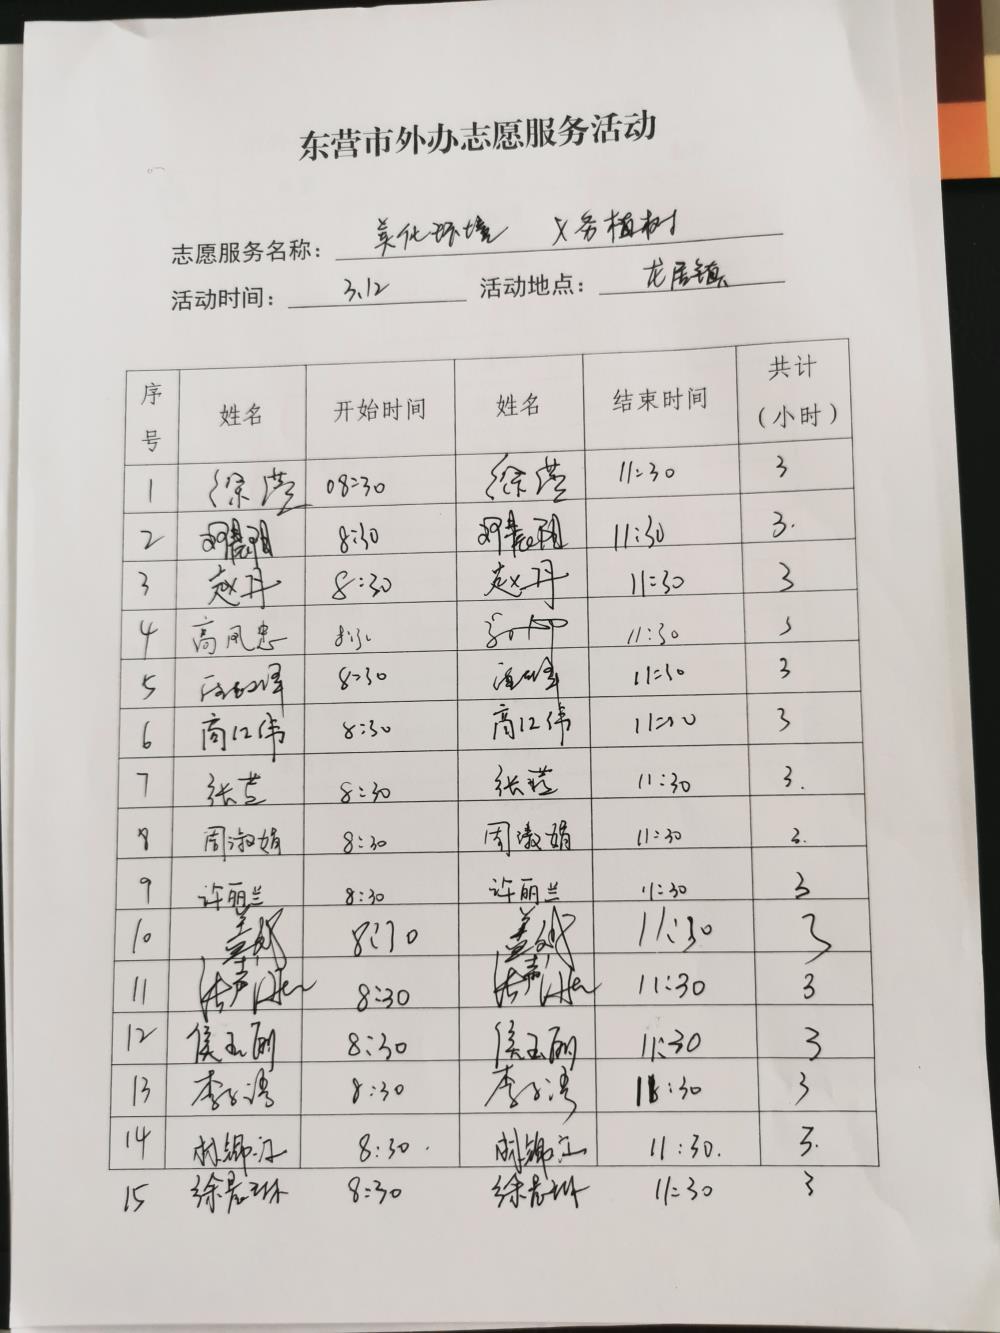 东营市外办志愿服务活动
志愿服务名称： 美化环境 义务植树
活动时间： 3.12 活动地点： 龙居镇
序号 姓名 开始时间 姓名 结束时间 共计（小时）
1 徐莹 08:30 徐莹 11:30 3
2 8:30 11:30 3.
3 赵丹 8:30 赵丹 11:30 3
4 高凤忠 8:30 11:30 3
5 8:30 11:30 3
6 商江伟 8:30 商江伟 11:30 3
7 张莹 8:30 张莹 11:30 3.
8 周淑娟 8:30 周淑娟 11:30 3.
9 许丽兰 8:30 许丽兰 11:30 3
10 8:30 11:30 3
11 8:30 11:30 3
12 侯玉丽 8:30 侯玉丽 11:30 3
13 8:30 11:30 3
14 8:30. 11:30. 3.
15 8:30 11:30 3